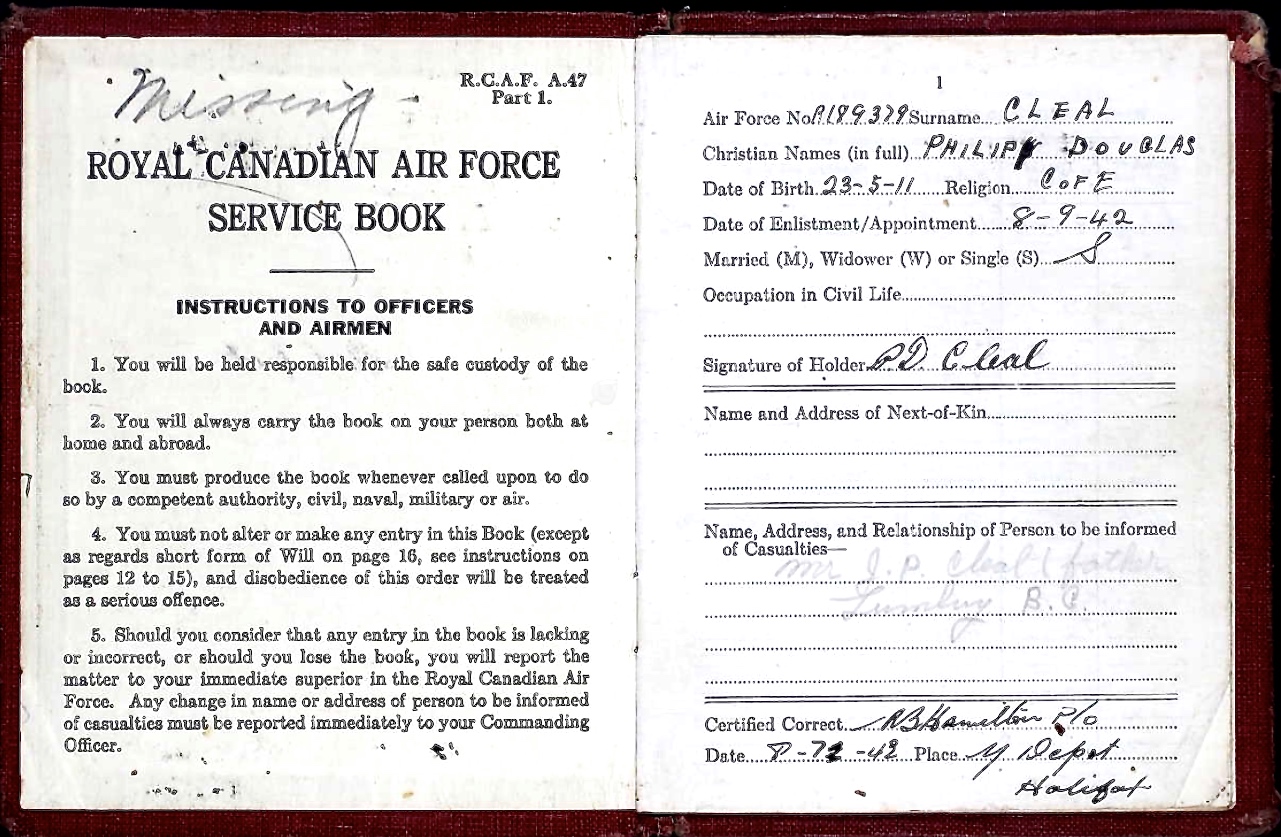 Missing -
R.C.A.F. A.47
Part 1.
ROYAL CANADIAN AIR FORCE
SERVICE BOOK
INSTRUCTIONS TO OFFICERS
AND AIRMEN
1. You will be held responsible for the safe custody of the
book.
2. You will always carry the book on your person both at
home and abroad.
3. You must produce the book whenever called upon to do
so by a competent authority, civil, naval, military or air.
4. You must not alter or make any entry in this Book (except
as regards short form of Will on page 16, see instructions on
pages 12 to 15), and disobedience of this order will be treated
as a serious offence.
5. Should you consider that any entry in the book is lacking
or incorrect, or should you lose the book, you will report the
matter to your immediate superior in the Royal Canadian Air
Force. Any change in name or address of person to be informed
of casualties must be reported immediately to your Commanding
Officer.
1
Air Force No. R189379 Surname CLEAL
Christian Names (in full) PHILIP DOUGLAS
Date of Birth 23-5-11 Religion C OF E
Date of Enlistment/Appointment 8-9-42
Married (M), Widower (W) or Single (S) S
Occupation in Civil Life
Signature of Holder P.D. Cleal
Name and Address of Next-of-Kin
Name, Address, and Relationship of Person to be informed
of Casualties—
Mr J. P. Cleal (father
Lumby B.C.
Certified Correct Hamilton P/O
Date -42 Place Y Depot
Halifax